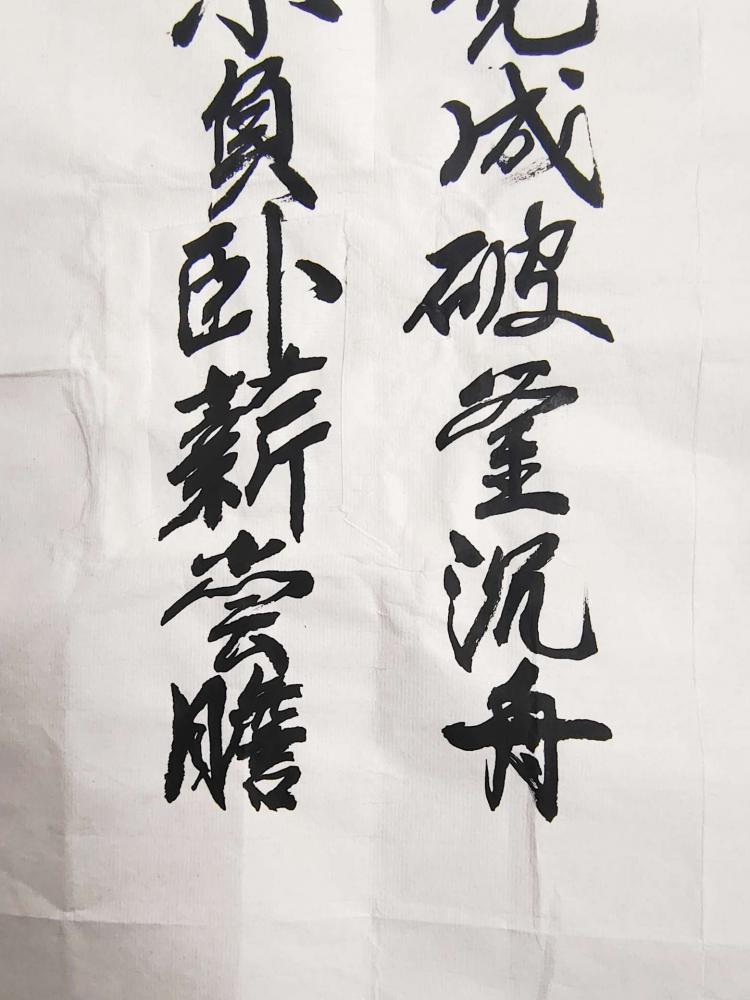 竟成破釜沉舟
不負卧薪尝膽